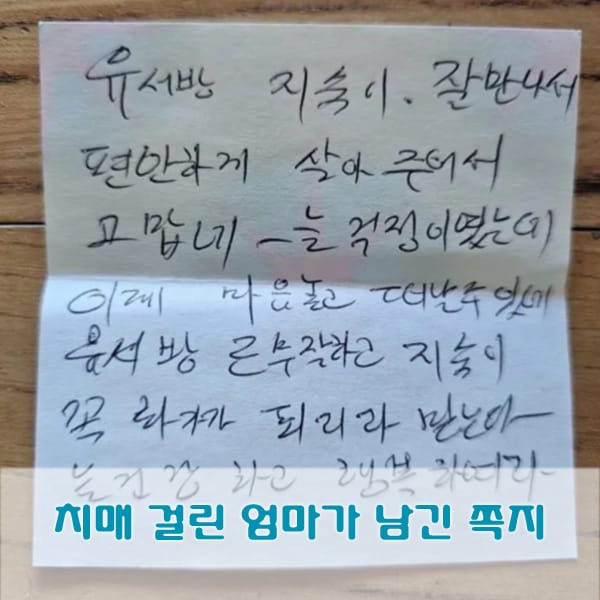 유서방 지숙이. 잘만나서
편안하게 살아 주어서
고맙네 늘 걱정이였는데
이제 마음놓고 떠날수있네
유서방 건강하고 지숙이
꼭 되리라 믿는다
늘건강 하고 행복하여라
치매 걸린 엄마가 남긴 쪽지